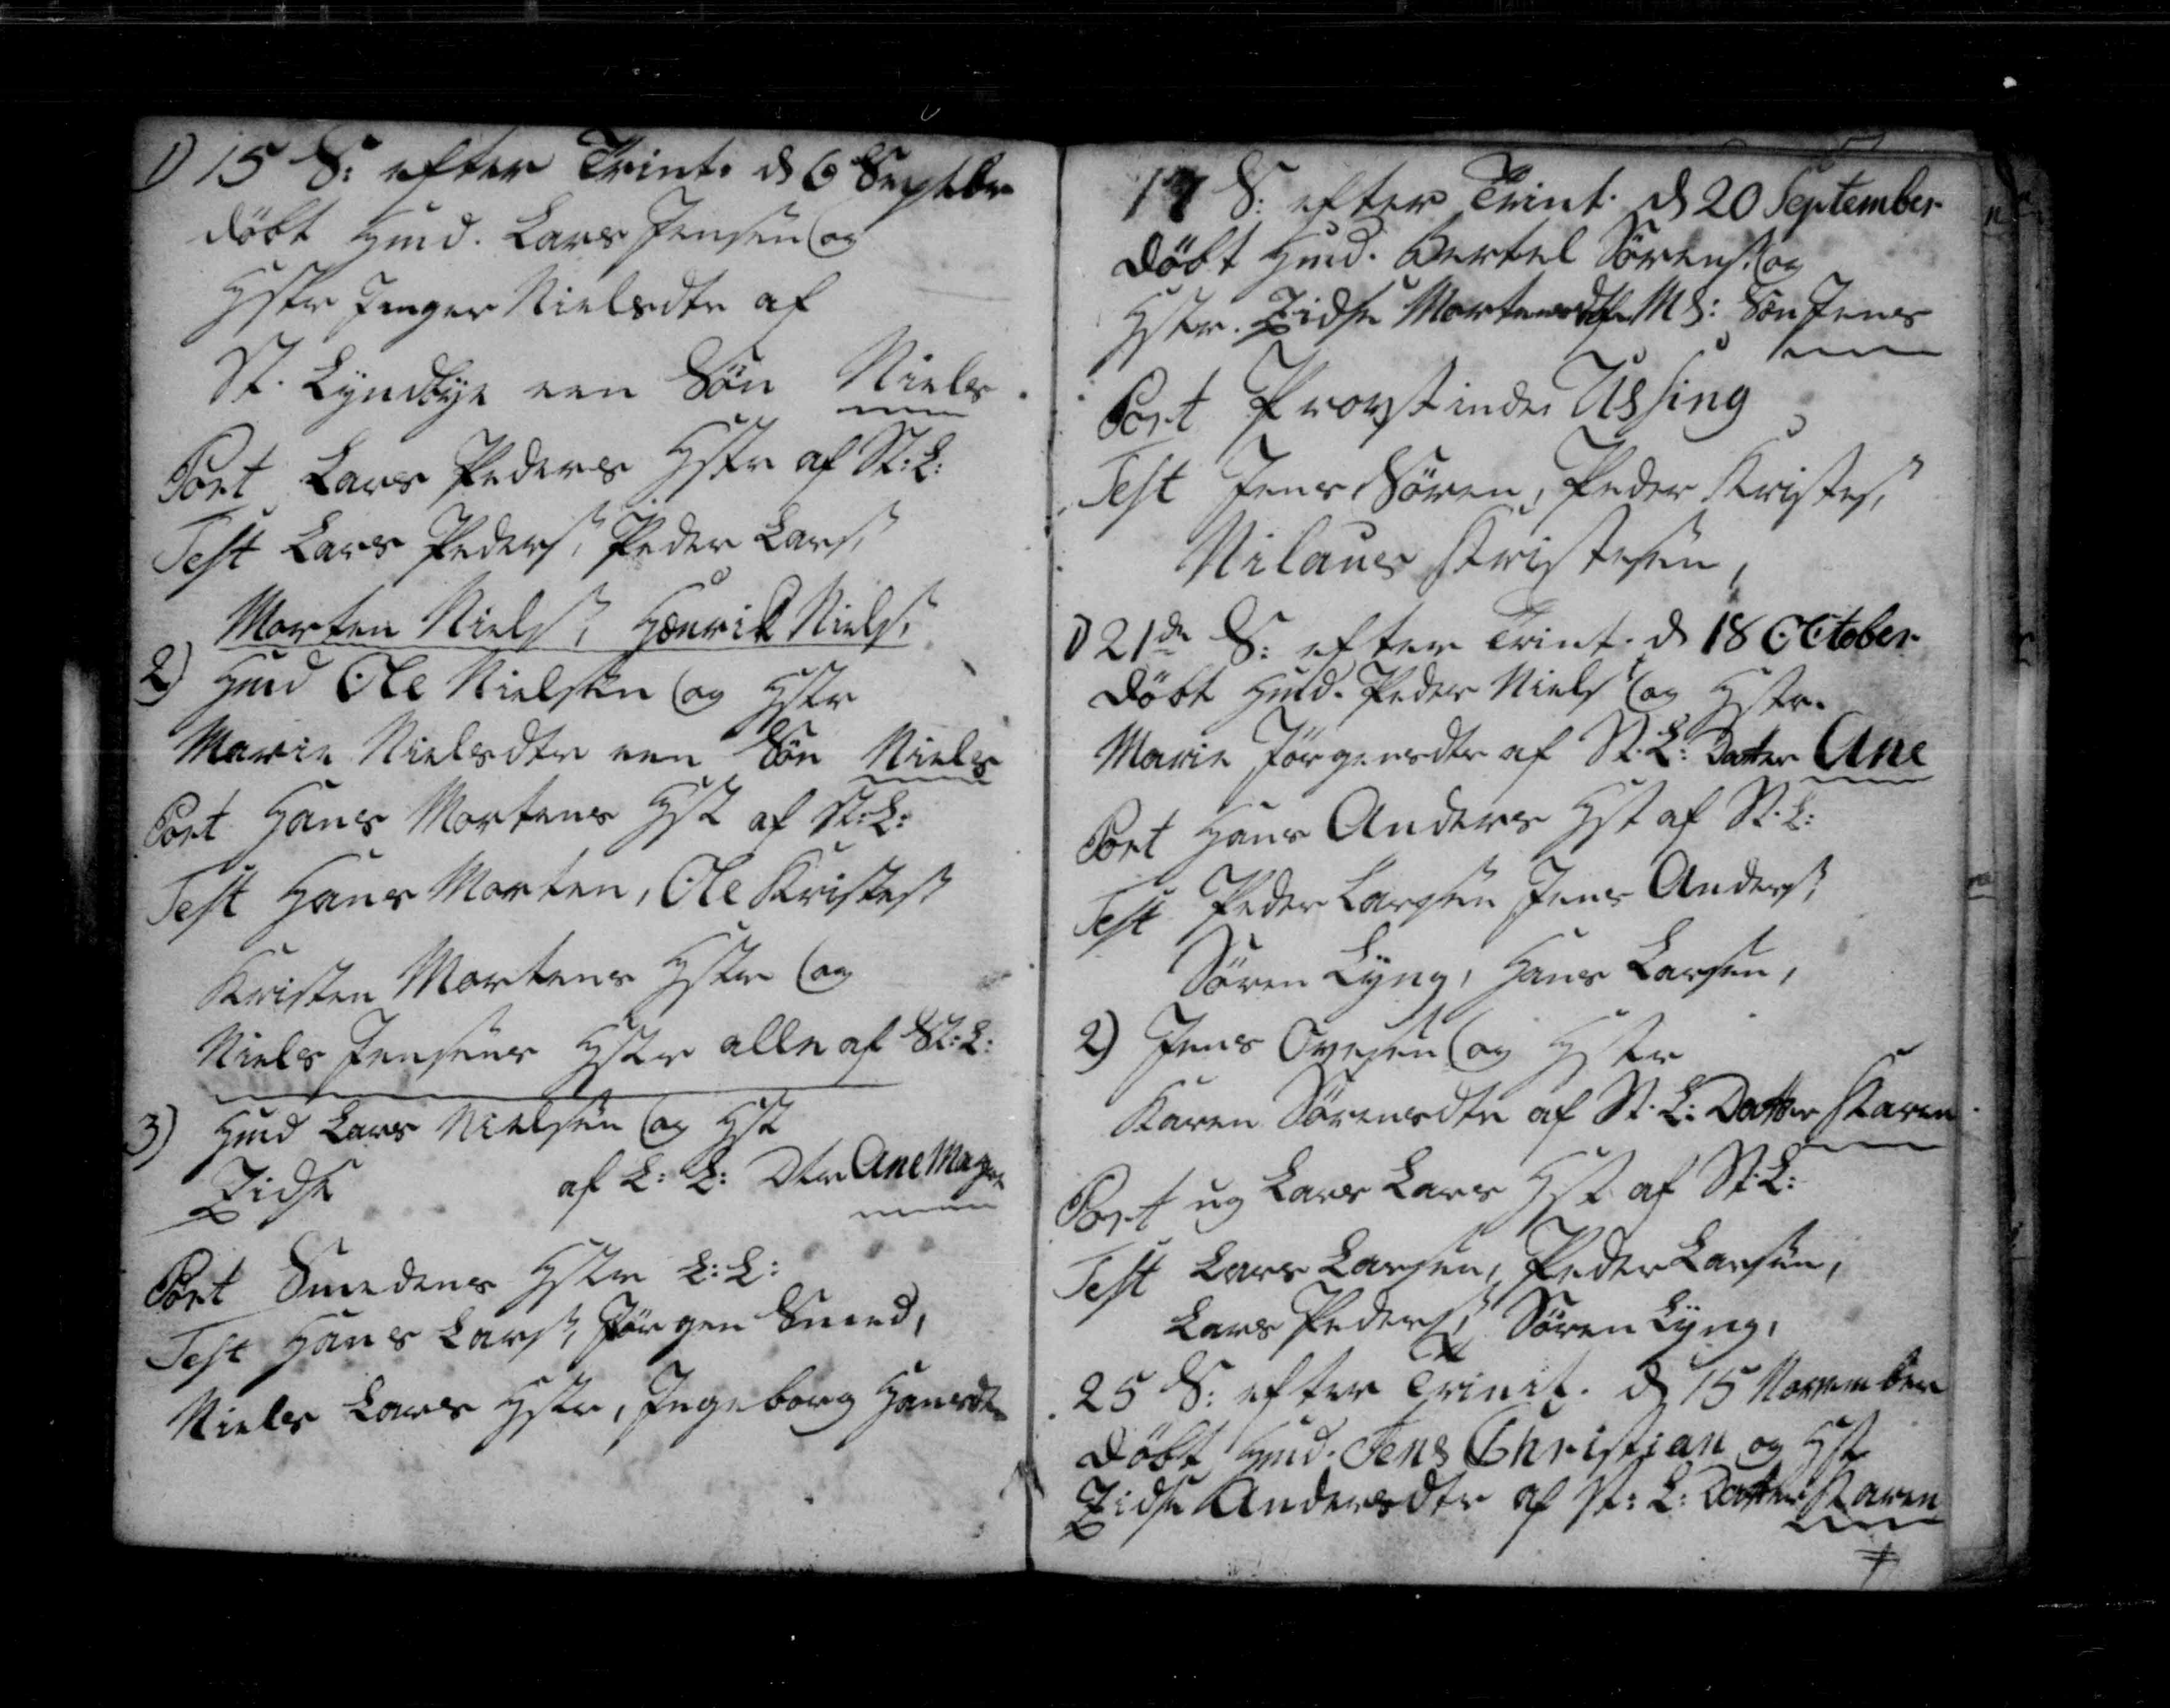 1) 15 S: efter Trint. d 6 Septebr
döbt Hmd. Lars Jensen og
Hstr Inger Nielsdtr af
St. Lyndbye een Sön Niels
Port Lars Peders Hstr af St: L:
Test Lars Peders, Peder Lars,
Morten Niels, Henrik Niels,
2) Hmd Ole Nielsen og Hstr
Marie Nielsdtr een Sön Niels
Port Hans Mortens Hst af St: L:
Test Hans Morten, Ole Kristes
Kristen Mortens Hstr og
Niels Jensens Hstr alle af St: L:
3) Hmd Lars Nielsen og Hst
Zidse af L: L: Dtr Ane Magre
Port Smedens Hstr L: L:
Test Hans Lars, Jörgen Smed,
Niels Lars Hstr, Ingeborg Hansdtr
17 S: efter Trint. d 20 September
döbt Hmd. Bertel Sörens. og
Hstr. Zidse Mortensdtr M S: Sön Jens
Port Provstinde Ussing
Test Jens Sören, Peder Kristes,
Nilaus Kristesen,
1) 21de S: efter Trint. d 18 October
döbt Hmd. Peder Niels og Hstr.
Marie Jörgensdtr af St. L: Datter Ane
Port Hans Anders Hst af St. L:
Test Peder Larsen Jens Anders,
Sören Lyng, Hans Larsen,
2) Jens Ovesen og Hstr
Karen Sörensdtr af St. L: Datter Karen
Port ug Lars Lars Hst af St: L:
Test Lars Larsen, Peder Larsen,
Lars Peders, Sören Lyng,
25 S: efter Trinit. d 15 November
döbt Hmd. Jens Christian og Hst
Zidse Andersdtr af St: L: Datter Karen